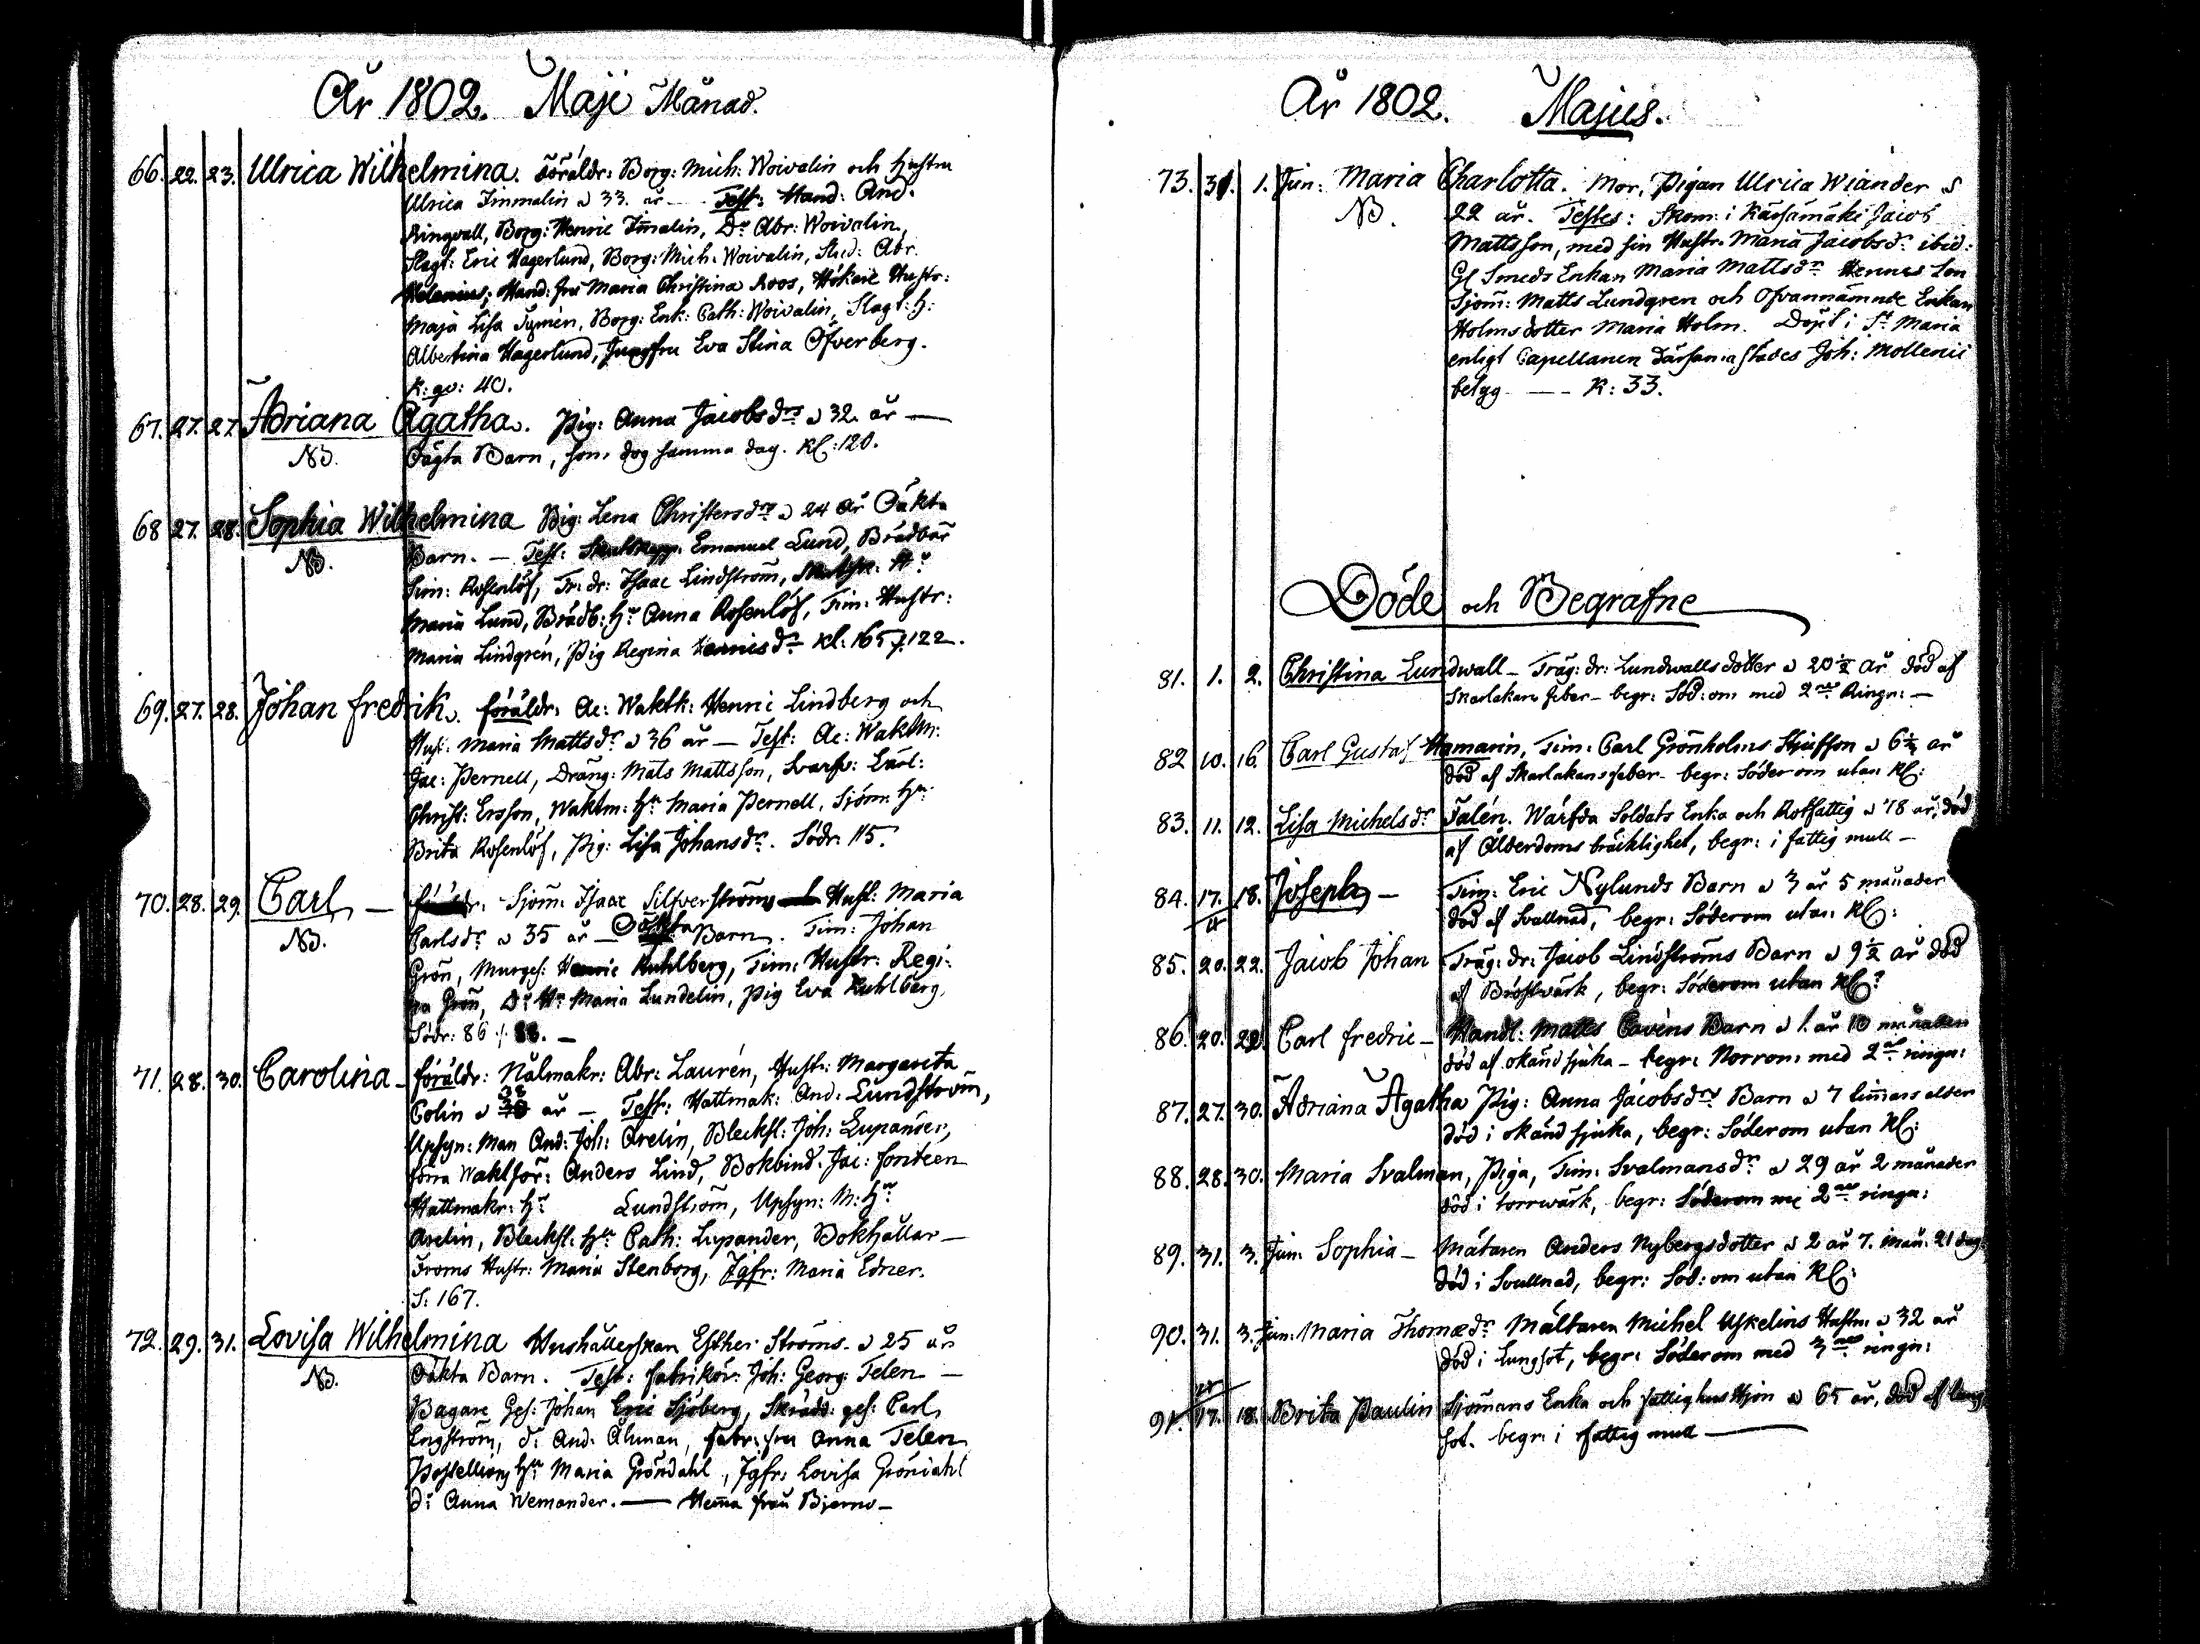 År 1802. Maji Månad.
66. 22. 23. Ulrica Wilhelmina. Föräldr: Borg: Mich: Woivalin och Hustru
Ulrica Immalin a 33. år — Test: Hand: And:
Ringvall, Borg: Henric Im̄alin, Do Abr: Woivalin,
Slagt: Eric Hagerlund, Borg: Mich: Woivalin, Stud: Abr.
Helenius; Hand: fru Maria Christina Roos, Hökare Hustr:
Maja Lisa Tymén, Borg: Enk: Cath: Woivalin, Slagt: H:
Albertina Hagerlund, Jungfru Eva Stina Öfverberg.
K: qv: 40.
67. 27. 27. Adriana Agatha. Pig: Anna Jacobsdrs a 32. år —
NB. Oägta Barn, som dog samma dag. Kl: 120.
68 27. 28. Sophia Wilhelmina Pig: Lena Christersdrs a 24 år Oäkta
NB. Barn. — Test: Emanuel Lund, Brädbär
Sim: Rosenlöf, Tr: dr: Isaac Lindström,
Maria Lund, Brädb: Hu Anna Rosenlöf, Tim: Hustr:
Maria Lindgrén, Pig Regina dr Kl: 165 /: 122.
69. 27. 28. Johan fredrik. föräldr: Ac: Waktk: Henric Lindberg och
Hust: Maria Mattsdr a 36 år — Test: Ac: Waktm:
Jac: Pernell, Dräng: Mats Mattsson, Svarfv: Lärl:
Christ: Ersson, Waktm: Hu Maria Pernell, Sjöm: Hu
Brita Rosenlöf, Pig: Lisa Johansdr. Södr: 115.
70. 28. 29. Carl — Sjöm: Isaac Silfverströms Hust: Maria
NB. Carlsdr a 35 år — Oäkta Barn. Tim: Johan
Grön, Murges: Henric Kuhlberg, Tim: Hustr: Regi-
na Grön, Do Hu Maria Lundelin, Pig Eva Kuhlberg,
Södr: 86 /: 88. —
71. 28. 30. Carolina — föräldr: Nålmakr: Abr: Laurén, Hust: Margareta
Colin a 38 år — Test: Hattmak: And: Lundström,
Upsyn: Man And: Joh: Arelin, Blecksl: Joh: Lupander,
förra Waktför: Anders Lind, Bokbind: Jac: fonteen
Hattmakr: Hu Lundström, Upsyn: M: Hu
Arelin, Blecksl: Hu Cath: Lupander, Bokhållar —
Froms Hustr: Maria Stenborg, Jgfr: Maria Edner.
S: 167.
72. 29. 31. Lovisa Wilhelmina Hushållerskan Esther Ströms a 25 års
NB. Oäkta Barn. Test: fabrikör: Joh: Georg: Telen —
Bagare Ges: Johan Eric Sjöberg, Skrädd: ges: Carl
Engström, d: And: Åhman, Fabr: fru Anna Telen
Hu Maria Gröndahl, Jgfr: Lovisa Gröndahl
do Anna Wemander. — Hem̄a från Bjerno —
År 1802. Majus.
73. 31. 1. Jun: Maria Charlotta. Mor, Pigan Ulrica Wiander a
NB. 22 år. Testes: Skom: i Kärsämäki Jacob
Mattsson, med sin Hustr: Maria Jacobsdr. ibid:
Gl Smeds Enkan Maria Mattsdr Hennes Son
Sjöm: Matts Lundgren och Ofvannämnde Enkan
Holmsdotter Maria Holm. Döpt i St Maria
enligt Capellanen därsammastädes Joh: Mollenii
betyg — K: 33.
Döde och Begrafne
81. 1. 2. Christina Lundwall — Träg: dr: Lundwalls dotter a 20½ år död af
Skarlakans feber — begr: Söd: om med 2ne Ringn: —
82 10. 16. Carl Gustaf Hamarin, Tim: Carl Grönholms Stjufson a 6½ år
död af Skarlakansfeber — begr: Söderom utan Kl:
83. 11. 12. Lisa Michelsdr Talén. Wärfda Soldats Enka och Rotfattig a 78 år, död
af Ålderdoms bräcklighet, begr: i fattig mull —
84. 17. 18. Joseph — Tim: Eric Nylunds Barn a 3 år 5 månader
död af Svullnad, begr: Söderom utan Kl:
85. 20. 22. Jacob Johan Träg: dr: Jacob Lindströms Barn a 9½ år död
af Bröstvärk, begr: Söderom utan Kl:
86. 20. 22. Carl fredric — Handl: Matts Cavéns Barn a 1. år 10 månaden
död af okänd sjuka — begr: Norrom med 2ne ringn:
87. 27. 30. Adriana Agatha Pig: Anna Jacobsdrs Barn a 7 tim̄ars ålder
död i okänd sjuka, begr: Söderom utan Kl:
88. 28. 30. Maria Svalman, Piga, Tim: Svalmansdr a 29 år 2 månader
död i torrwärk, begr: Söderom me 2ne ringn:
89. 31. 3. Jun: Sophia — Mätaren Anders Nybergsdotter a 2 år 7. mån: 21 dag
död i Svullnad, begr: Söd: om utan Kl:
90. 31. 3. Jun: Maria Thomædr Mältaren Michel Uskelins Hustru a 32 år
död i Lungsot, begr: Söderom med 3ne ringn:
91. 17. 18. Brita Paulin Sjömans Enka och fattighus Hjon a 65 år, död af lung
sot. begr: i fattig mull —